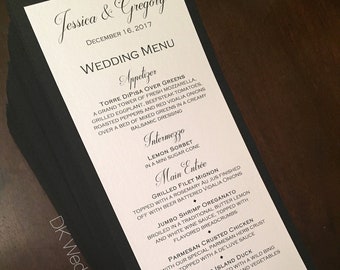 Jessica & Gregory
December 16, 2017
Wedding Menu
Appetizer
Torre DiPisa Over Greens
a grand tower of fresh mozzarella,
grilled eggplant, beefsteak tomatoes,
roasted peppers and red Vidalia onions
over a bed of mixed greens in a creamy
balsamic dressing
Intermezzo
Lemon Sorbet
in a mini sugar cone
Main Entrée
Grilled Filet Mignon
topped with a rosemary au jus and finished
off with beer battered Vidalia onions
Jumbo Shrimp Oreganato
broiled in a traditional butter lemon
and white wine sauce, topped with
flavored breadcrumbs
Parmesan Crusted Chicken
topped with a de luve sauce
Island Duck
with a wild bing
DK Wed